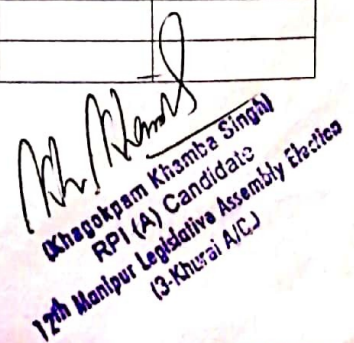 Kh. Khamba
(Khagokpam Khamba Singh)
RPI (A) Candidate
12th Manipur Legislative Assembly Election
(3-Khurai A/C)